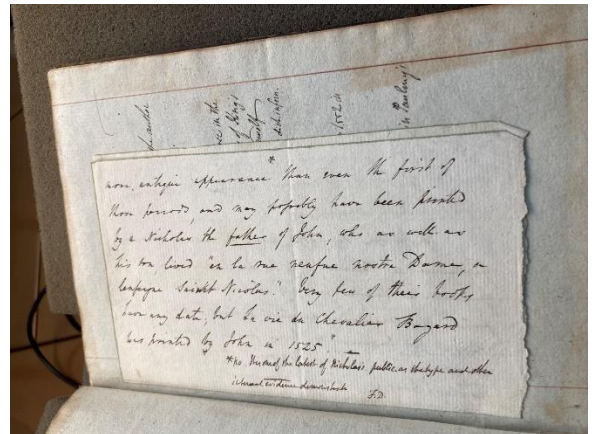 more antique appearance * than even the first of
those periods, and may possibly have been printed
by a Nicholas the father of John, who as well as
his son lived "en la rue neufue nostre Dame, a
lenseigne Sainkt Nicolas." Very few of their books
have any date; but La vie du Chevalier Bayard
was printed by John in 1525"
* no. This one of the latest of Nicholas's public.as the type and other
internal evidence demonstrate
F.D.
in the
of King
1502 in